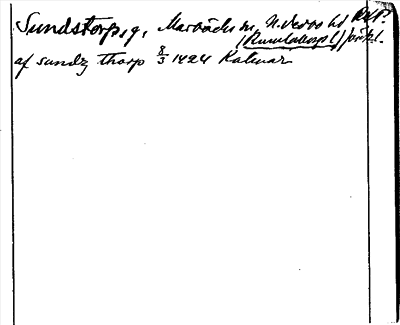 Sundstorp, g, Marbäcks sn, N. Vedbo hd Rst?
(Rumlaborgs l) / orikt.
af sundz thorp 8/3 1424 Kalmar